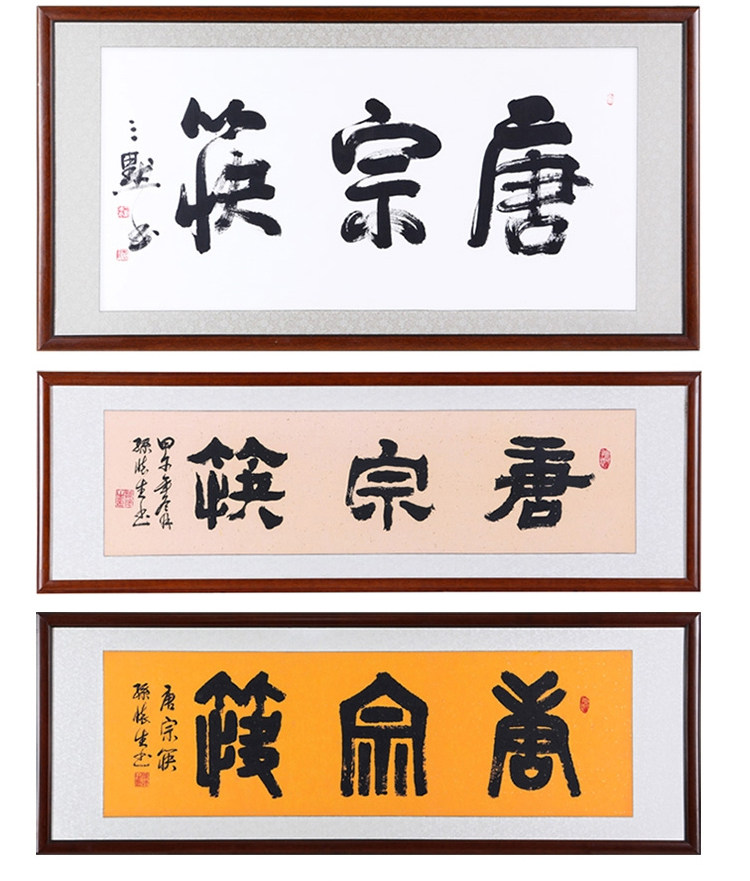 唐宗筷
三默书
唐宗筷
甲午年冬月
孫懷生书
唐宗筷
唐宗筷
孫懷生书